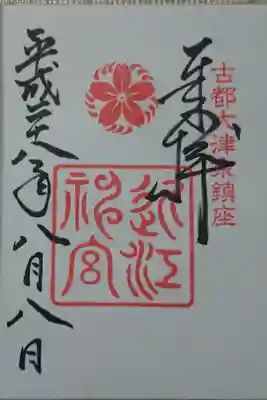 古都大津京鎮座
奉拝
近江
神宮
平成廿八年八月八日